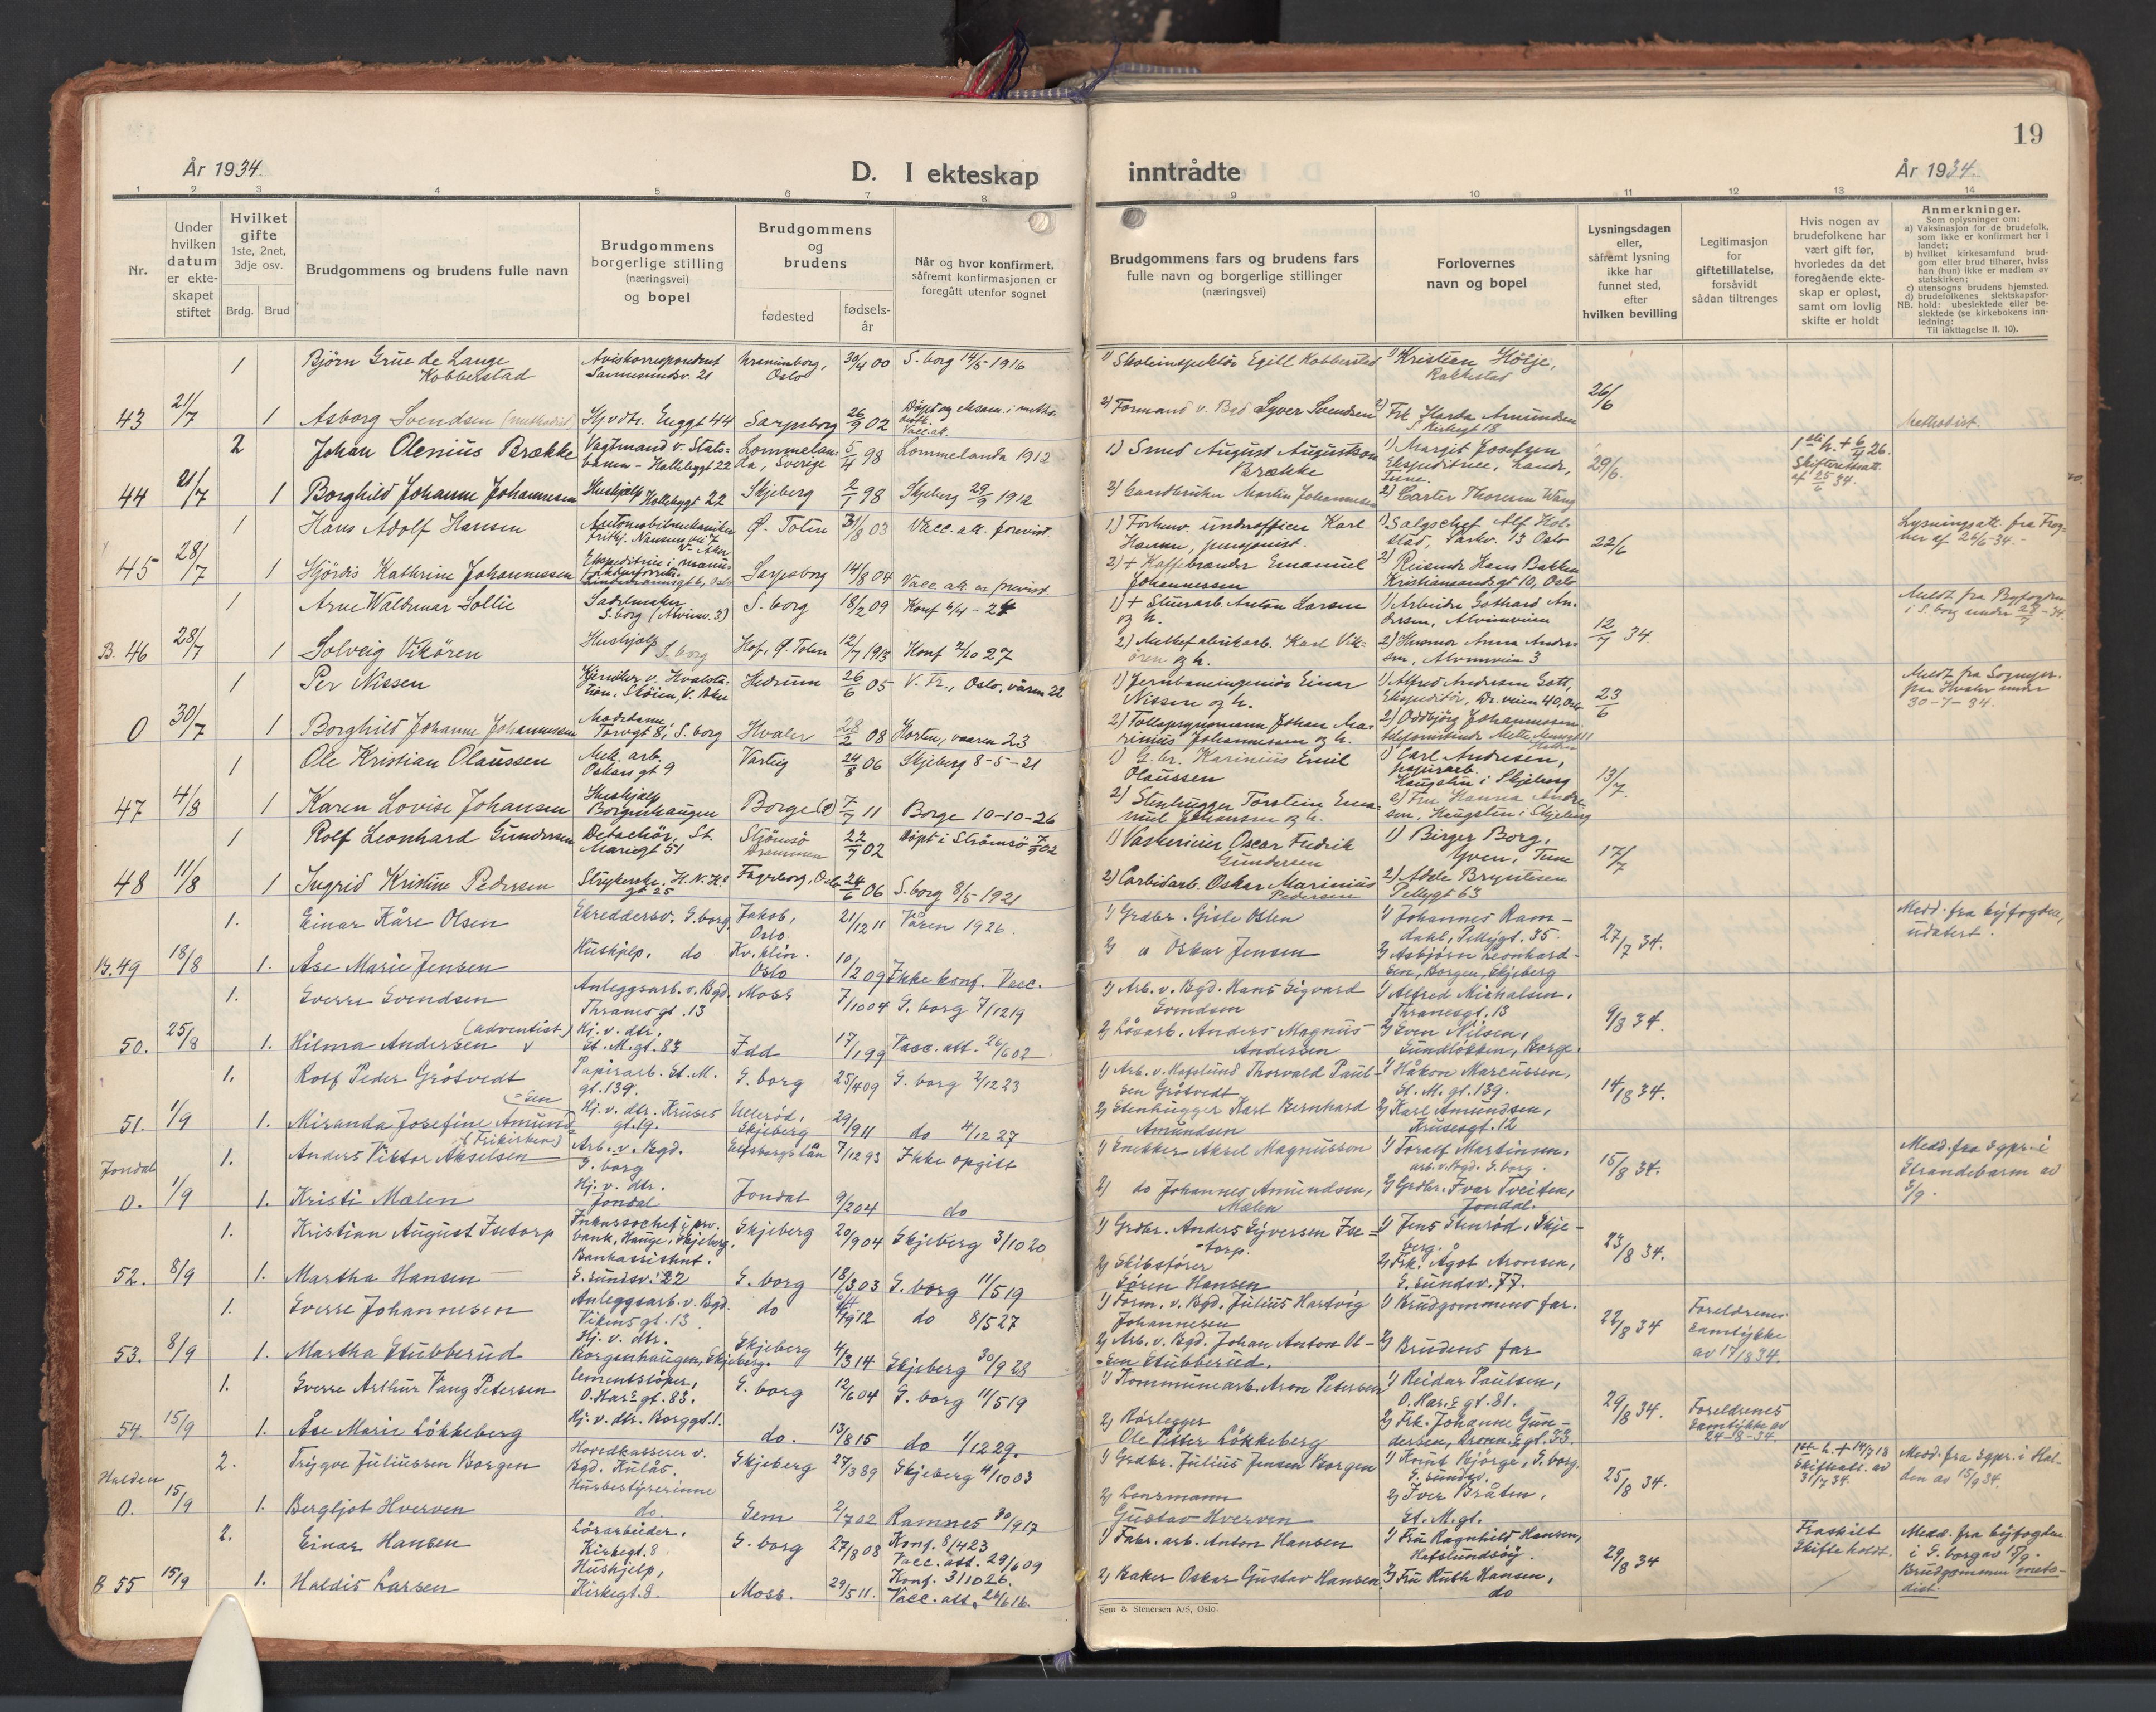 19
År 1934
D. I ekteskap
inntrådte
År 1934.
1 2 3 4 5 6 7 8 9 10 11 12 13 14
Nr.
Under
hvilken
datum
er ekte-
skapet
stiftet
Hvilket
gifte
1ste, 2net,
3dje osv.
Brdg.
Brud
Brudgommens og brudens fulle navn
Brudgommens
borgerlige stilling
(næringsvei)
og bopel
Brudgommens
og
brudens
fødested
fødsels-
år
Når og hvor konfirmert,
såfremt konfirmasjonen er
foregått utenfor sognet
Brudgommens fars og brudens fars
fulle navn og borgerlige stillinger
(næringsvei)
Forlovernes
navn og bopel
Lysningsdagen
eller,
såfremt lysning
ikke har
funnet sted,
efter
hvilken bevilling
Legitimasjon
for
giftetillatelse,
forsåvidt
sådan tiltrenges
Hvis nogen av
brudefolkene har
vært gift før,
hvorledes da det
foregående ekte-
skap er opløst,
samt om lovlig
skifte er holdt
Anmerkninger.
Som oplysninger om:
a) Vaksinasjon for de brudefolk,
som ikke er konfirmert her i
landet;
b) hvilket kirkesamfund brud-
gom eller brud tilhører, hviss
han (hun) ikke er medlem av
statskirken;
c) utensogns brudens hjemsted.
d) brudefolkenes slektskapsfor-
NB. hold: ubeslektede eller be-
slektede (se kirkebokens inn-
ledning:
Til iakttagelse II. 10).
1 Bjørn Grue de Lange Aviskorrespondent 30/4 00 S. borg 14/5 1916 1) Skoleinspektør Egill Kobberstad 1) Kristian
Kobberstad Oslo Rakkestad
43 21/7 1 Asborg Svendsen (methodist) Enggt 44 Sarpsborg 26/9 02 2) Formand v. Syver Svendsen 2) Frk Amundsen 26/6 Methodist.
2 Johan Olenius Brække Vagtmand v. Stats- Lommelan- 5/4 98 Lommelanda 1912 1) Smed August Augustson 1) Margit Josefsen
banen - Hallebygt 22 da, Sverige Brække Tune. 29/6.
44 21/7 1 Borghild Johanne Johannessen Hushjelp Hallebygt 22 Skjeberg 2/1 98 Skjeberg 29/9 1912 2) Martin Johannessen 2) Carter Thoresen Wang
1 Hans Adolf Hansen Automobilmekaniker Ø. Toten 31/8 03 Vacc. att. forevist. 1) Forhenv. underofficer Karl 1) Salgschef Alf Hol-
Hansen, pensjonist. stad, Parkv. 13 Oslo 22/6
45 28/7 1 Hjördis Kathrine Johannessen Sarpsborg 14/8 04 Vacc. att. er forevist. 2) + Kaffebrænder Emanuel 2) Reisende Hans Bakken
Johannessen Kristiansandsgt 10, Oslo
1 Arne Waldemar Sollie Sadelmaker S. borg 18/2 09 Konf 6/4 - 24 1) + Stuerarb. Anton Larsen 1) Arbeider Gothard An-
og h. dersen, Alvimveien 12/7 34.
B. 46 28/7 1 Solveig Vikören Hushjelp S. borg Hof, Ø. Toten 12/7 1913 Konf 2/10 27 Karl Vik- 2) Husmor Anna Ander-
ören og h. sen, Alvimveien 3
1 Per Nissen Hedrum 26/6 05 V. Fr., Oslo, våren 22 1) Jernbaneingeniør Einar 1) Alfred Andresen
Nissen og h. 23/6
0 30/7 1 Borghild Johanne Johannessen Torvgt 8, S. borg Hvaler 28/2 08 Horten, vaaren 23 2) Johan Ma- 2) Oddbjörg Johannessen
rinius Johannessen og h.
1 Ole Kristian Olaussen Mek. arb. Varteig 24/8 06 Skjeberg 8-5-21 1) G. br. Karinius Emil 1) Carl Andresen,
Oskars gt 9 Olaussen papirarb. 13/7
47 4/8 1 Karen Lovise Johansen Hushjelp Borge 7/7 11 Borge 10-10-26 2) Stenhugger Torstein Ema-
Borgenhaugen nuel Johansen og h. i Skjeberg
1 Rolf Leonhard Gundersen St. Strömsö 22/7 02 Døpt i Strömsö 1) Oscar Fredrik 1) Birger Borg,
Mariegt 51 Drammen Gundersen Yven, Tune 17/7
48 11/8 1 Ingrid Kristine Pedersen Fagerborg, Oslo 24/6 06 S. borg 8/5 1921 2) Carbidarb. Oskar Marinius 2) Adele Bryntesen
Pedersen Pellygt 63
1. Einar Kåre Olsen Skreddersv. S. borg Jakob, 21/12 11 Våren 1926. 1) Grdbr. Gisle Olsen 1) Johannes Ram- Medd. fra byfogden,
Oslo dahl, Pellygt. 35. 27/7 34. udatert.
B. 49 18/8 1. Åse Marie Jensen Hushjelp. do Kv. klin. 10/2 09 Ikke konf. Vacc. 2) Oskar Jensen 2) Asbjørn Leonhard-
Oslo sen, Borgen, Skjeberg
1. Sverre Svendsen Anleggsarb. v. Bgd. Moss 7/10 04 S. borg 7/12 19 1) Arb. v. Bgd. Hans Sigvard 1) Alfred Michalsen,
Thranesgt. 13 Svendsen Thranesgt. 13 9/8 34.
50. 25/8 1. Hilma Andersen (adventist) Hj. v. dtr. Idd 17/1 99 Vacc. att. 26/6 02 2) Løsarb. Anders Magnus 2) Sven Nilsen,
St. M. gt. 83 Andersen Sundløkken, Borge.
1. Rolf Peder Grötvedt Papirarb. St. M. S. borg 25/4 09 S. borg 2/12 23 1) Arb. v. Hafslund Thorvald Paul- 1) Håkon Marcussen,
gt. 139. sen Grötvedt St. M. gt. 139. 14/8 34.
51. 1/9 1. Miranda Josefine Amund- Hj. v. dtr. Kruses Ullerød, 29/9 11 do 4/12 27 2) Stenhugger Karl Bernhard 2) Karl Amundsen,
sen (Frikirken) gt. 19. Skjeberg Amundsen Krusesgt. 12
1. Anders Viktor Akselsen Arb. v. Bgd. Elfsborgs län 7/12 93 Ikke opgitt 1) Snekker Aksel Magnusson 1) Toralf Martinsen, Medd. fra sgpr. i
S. borg arb. v. Bgd. S. borg. 15/8 34. Strandebarm av
Jondal 0. 1/9 1. Kristi Mælen Hj. v. dtr. Jondal 9/2 04 do 2) do Johannes Amundsen, 2) Grdbr. Ivar Tveiten, 5/9.
Jondal Mælen Jondal.
1. Kristian August Isetorp Inkassochef i prv. Skjeberg 20/9 04 Skjeberg 3/10 20 1) Grdbr. Anders Syversen Ise- 1) Jens Stenrød, Skje-
bank, Hauge, Skjeberg. torp. berg. 23/8 34.
52. 8/9 1. Martha Hansen Bankassistent. S. borg 18/3 03 S. borg 11/5 19 2) Skibsfører 2) Frk. Ågot Aronsen,
S. sundsv. 22 Søren Hansen S. sundsv. 77.
1. Sverre Johannesen Anleggsarb. v. Bgd. do do 8/5 27 1) Form. v. Bgd. Julius Hartvig 1) Brudgommens far. Foreldrenes
Vikens gt. 13 Johannesen 22/8 34 samtykke
53. 8/9 1. Martha Stubberud Hj. v. dtr. Skjeberg 4/3 14 Skjeberg 30/9 28 2) Arb. v. Bgd. Johan Anton Ol- 2) Brudens far av 17/8 34.
Borgenhaugen, Skjeberg. sen Stubberud.
1. Sverre Arthur Vang Petersen Cementstøper, S. borg 12/6 04 S. borg 11/5 19 1) Kommunearb. Aron Petersen 1) Reidar Paulsen,
O. Har.s gt. 83. O. Har.s gt. 81. 29/8 34. Foreldrenes
54. 15/9 1. Åse Marie Løkkeberg Hj. v. dtr. Borggt. 1. do. 13/8 15 do 1/12 29. 2) Rørlegger 2) Frk. Johanne Gun- samtykke av
Ole Petter Løkkeberg dersen, gt. 33. 24-8-34.
2. Trygve Juliussen Borgen Hovedkasserer v. Skjeberg 27/3 89 Skjeberg 4/10 03 1) Grdbr. Julius Jensen Borgen 1) Knut Bjørge, S. borg. Medd. fra sgpr. i Hal-
Bgd. Kulås. S. sundsv. 25/8 34. Skifteatt. av 31/7 34. den av 15/9 34.
Halden 0. 15/9 1. Bergljot Hverven Husbestyrerinne Sem 2/7 02 Ramnes 30/9 17 2) Lensmann 2) Iver Bråten,
do. Gustav Hverven St. M. gt.
2. Einar Hansen Løsarbeider. S. borg 27/8 08 Konf. 8/4 23 1) Fabr. arb. Anton Hansen 1) Fru Ragnhild Hansen, Fraskilt Medd. fra byfogden
Kirkegt. 8. Vacc. att. 29/6 09 Hafslundsøy. 29/8 34 Skifte holdt. i S. borg av 15/9.
B 55 15/9 1. Haldis Larsen Hushjelp, Moss. 29/5 11. Konf. 3/10 26. 2) Baker Oskar Gustav Hansen 2) Fru Ruth Hansen, Brudgommen meto-
Kirkegt. 8. Vacc. att. 26/6 16. do dist.
Sem & Stenersen A/S, Oslo.